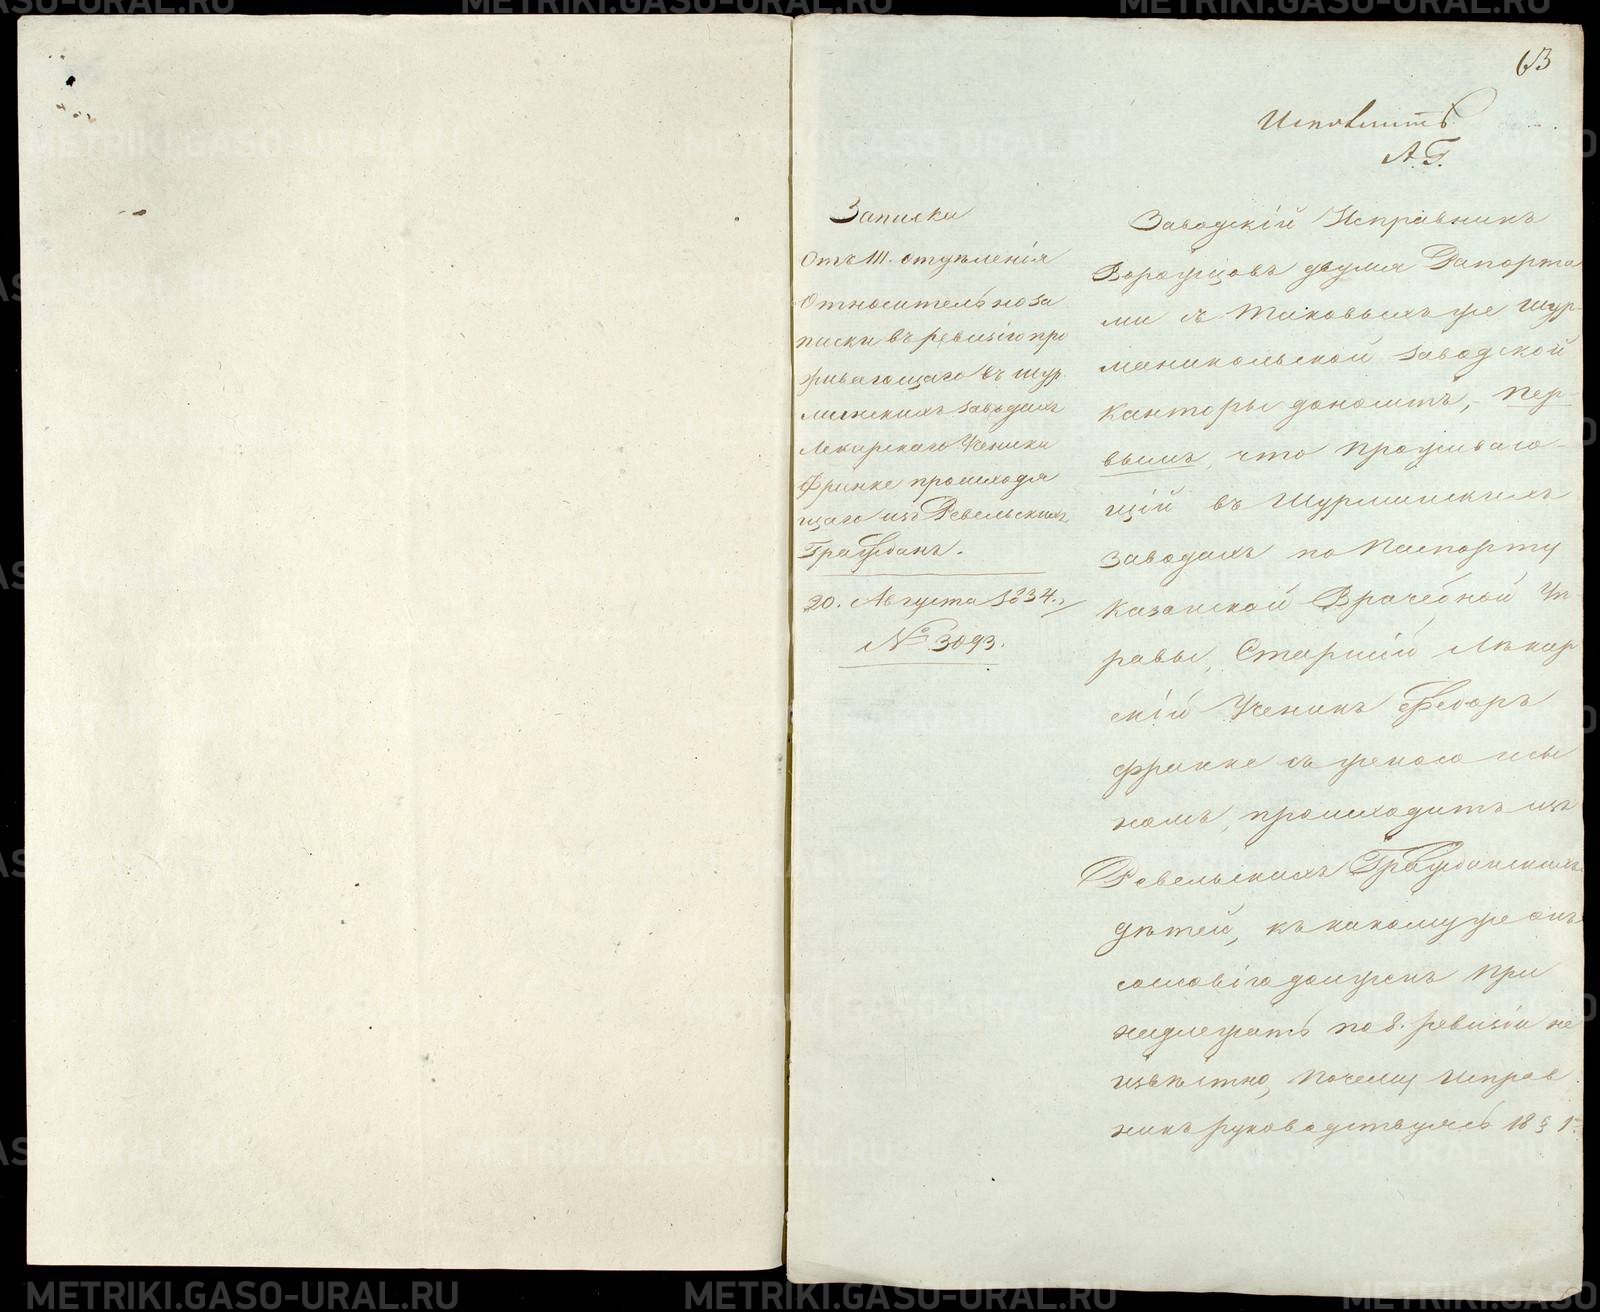 63
Исполнить
А.Г.
Записка
Отъ III. отделенія
Относительно за
писки въ ревизію про
живающаго въ Шур
минскихъ заводахъ
Лекарскаго Ученика
Франке происходя
щаго изъ Ревельскихъ
Гражданъ.
20. Августа 1834.
№ 3093.
Заводскій Исправникъ
Ворожцовъ двумя Рапорта
ми съ таковыхъ же Шур-
маникольской заводской
канторы доноситъ, Пер-
вымъ, что проживаю-
щій въ Шурминскихъ
заводахъ по Паспорту
Казанской Врачебной Уп-
равы, Старшій Лѣкар
скій Ученикъ Федоръ
Франке съ женою и сы
номъ, происходитъ изъ
Ревельскихъ Гражданскихъ
дѣтей, къ какому же онъ
сословію долженъ при
надлежать по 8. ревизіи не
извѣстно, Почему Исправ
никъ руководствуясь 18 §
METRIKI.GASO-URAL.RU